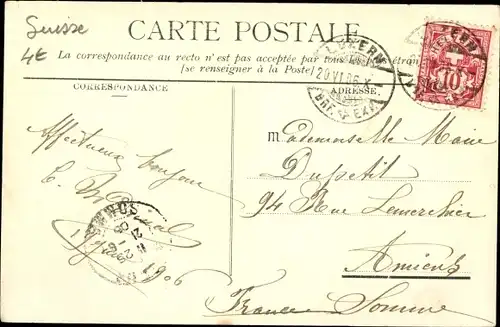 Suisse
4€
CARTE POSTALE
La correspondance au recto n'est pas acceptée par tous les pays étran
[se renseigner à la Poste]
LUZERN
20.VI.06.X
BRF. EXP.
10
CORRESPONDANCE
ADRESSE.
Affectueux bonjour
1906
Mademoiselle Marie
Dupetit
94 Rue Lemerchier
Amiens
France Somme